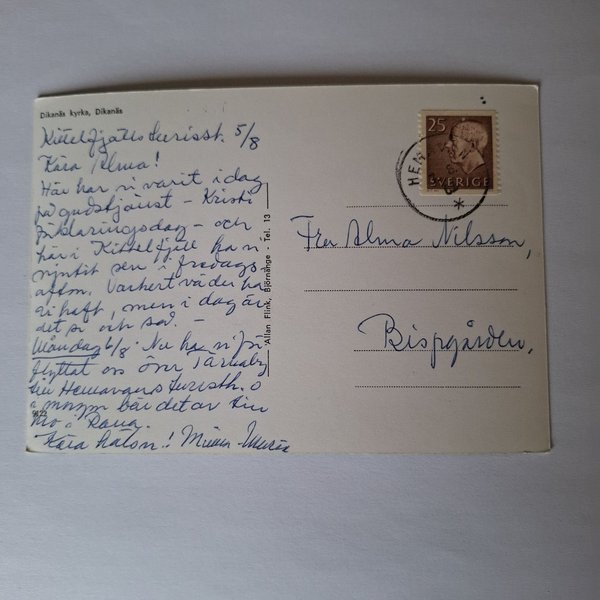 Dikanäs kyrka, Dikanäs
Kittelfjälls turistst. 5/8
Kära Alma!
Här har vi varit i dag
på gudstjänst – Kristi
förklaringsdag – och
här i Kittelfjäll ha vi
njutit sen i fredags
afton. Vackert väder ha
vi haft, men i dag är
det si och så. –
Måndag 6/8. Nu ha vi
flyttat oss över Tärnaby
till Hemavans turisth. o
i morgon bär det av till
Mo i Rana.
Kära hälsn.!
9122
Allan Flink, Björnänge - Tel. 13
25
SVERIGE
HEM
Fru Alma Nilsson,
Bispgården,